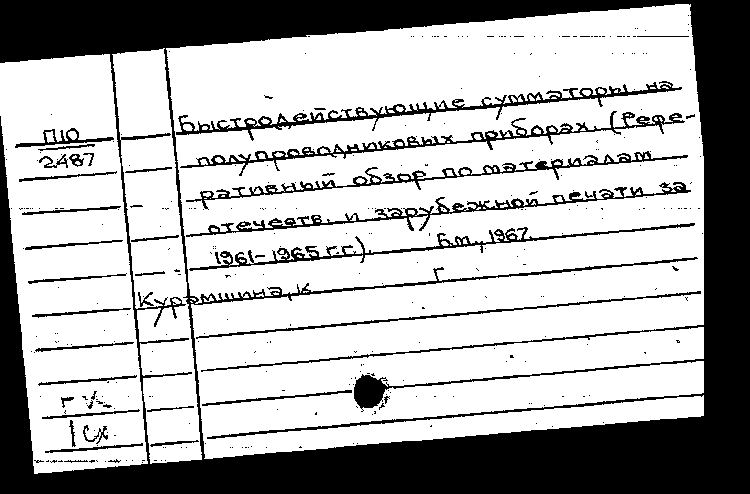 Быстродействующие сумматоры на
П10
2487
полупроводниковых приборах. (Рефе-
ративный обзор по материалам
отечеств. и зарубежной печати за
1961-1965 г.г.). Б.м., 1967.
Курамшина, к г
г к
1 сх